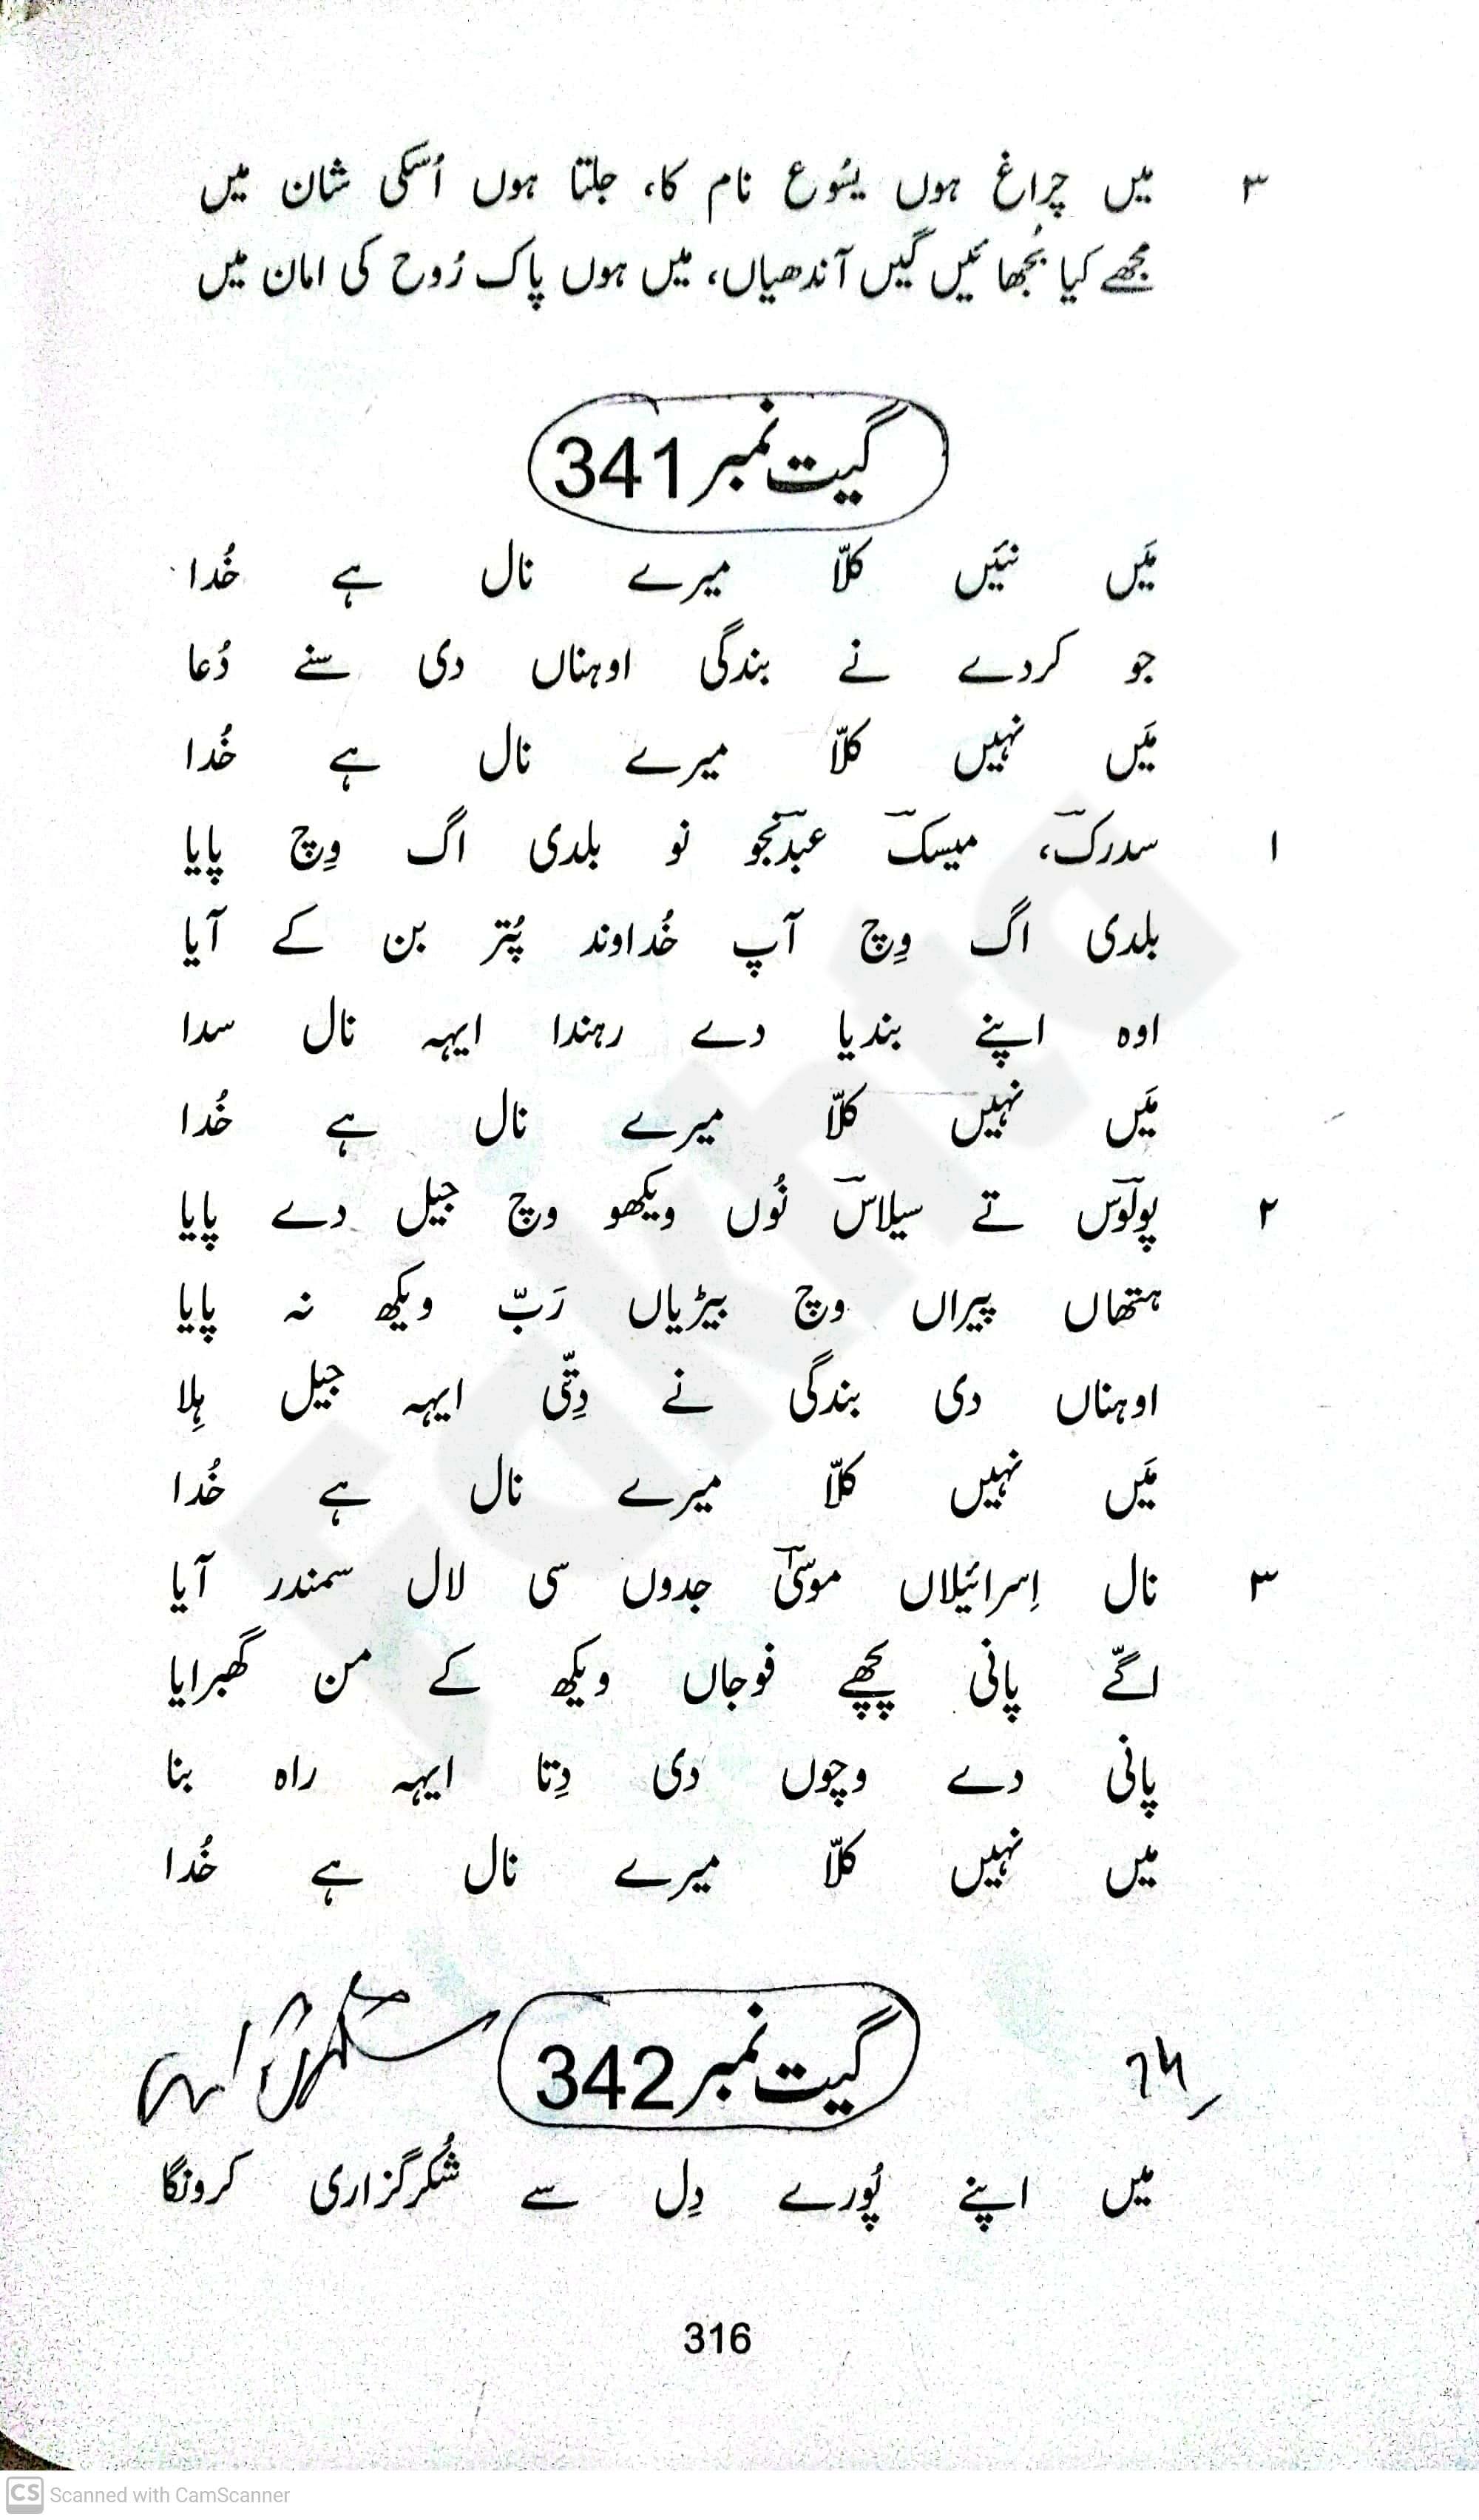 ۳ میں چراغ ہوں یسُوع نام کا، جلتا ہوں اُسکی شان میں
مجھے کیا بُجھائیں گیں آندھیاں، میں ہوں پاک رُوح کی امان میں
گیت نمبر 341
مَیں نیَں کلّا میرے نال ہے خُدا
جو کردے نے بندگی اوہناں دی سنے دُعا
مَیں نہیں کلّا میرے نال ہے خُدا
۱ سدرک، میسک عبدنجو نو بلدی اگ وِچ پایا
بلدی اگ وِچ آپ خُداوند پُتر بن کے آیا
اوہ اپنے بندیا دے رہندا ایہہ نال سدا
مَیں نہیں کلّا میرے نال ہے خُدا
۲ پولوس تے سیلاس نُوں ویکھو وچ جیل دے پایا
ہتھاں پیراں وچ بیڑیاں رَبّ ویکھ نہ پایا
اوہناں دی بندگی نے دِتّی ایہہ جیل ہِلا
مَیں نہیں کلّا میرے نال ہے خُدا
۳ نال اِسرائیلاں موسیٰ جدوں سی لال سمندر آیا
اگّے پانی پچھے فوجاں ویکھ کے من گھبرایا
پانی دے وچوں دی دِتا ایہہ راہ بنا
میں نہیں کلّا میرے نال ہے خُدا
گیت نمبر 342
میں اپنے پُورے دِل سے شُکرگزاری کرونگا
316
CS Scanned with CamScanner